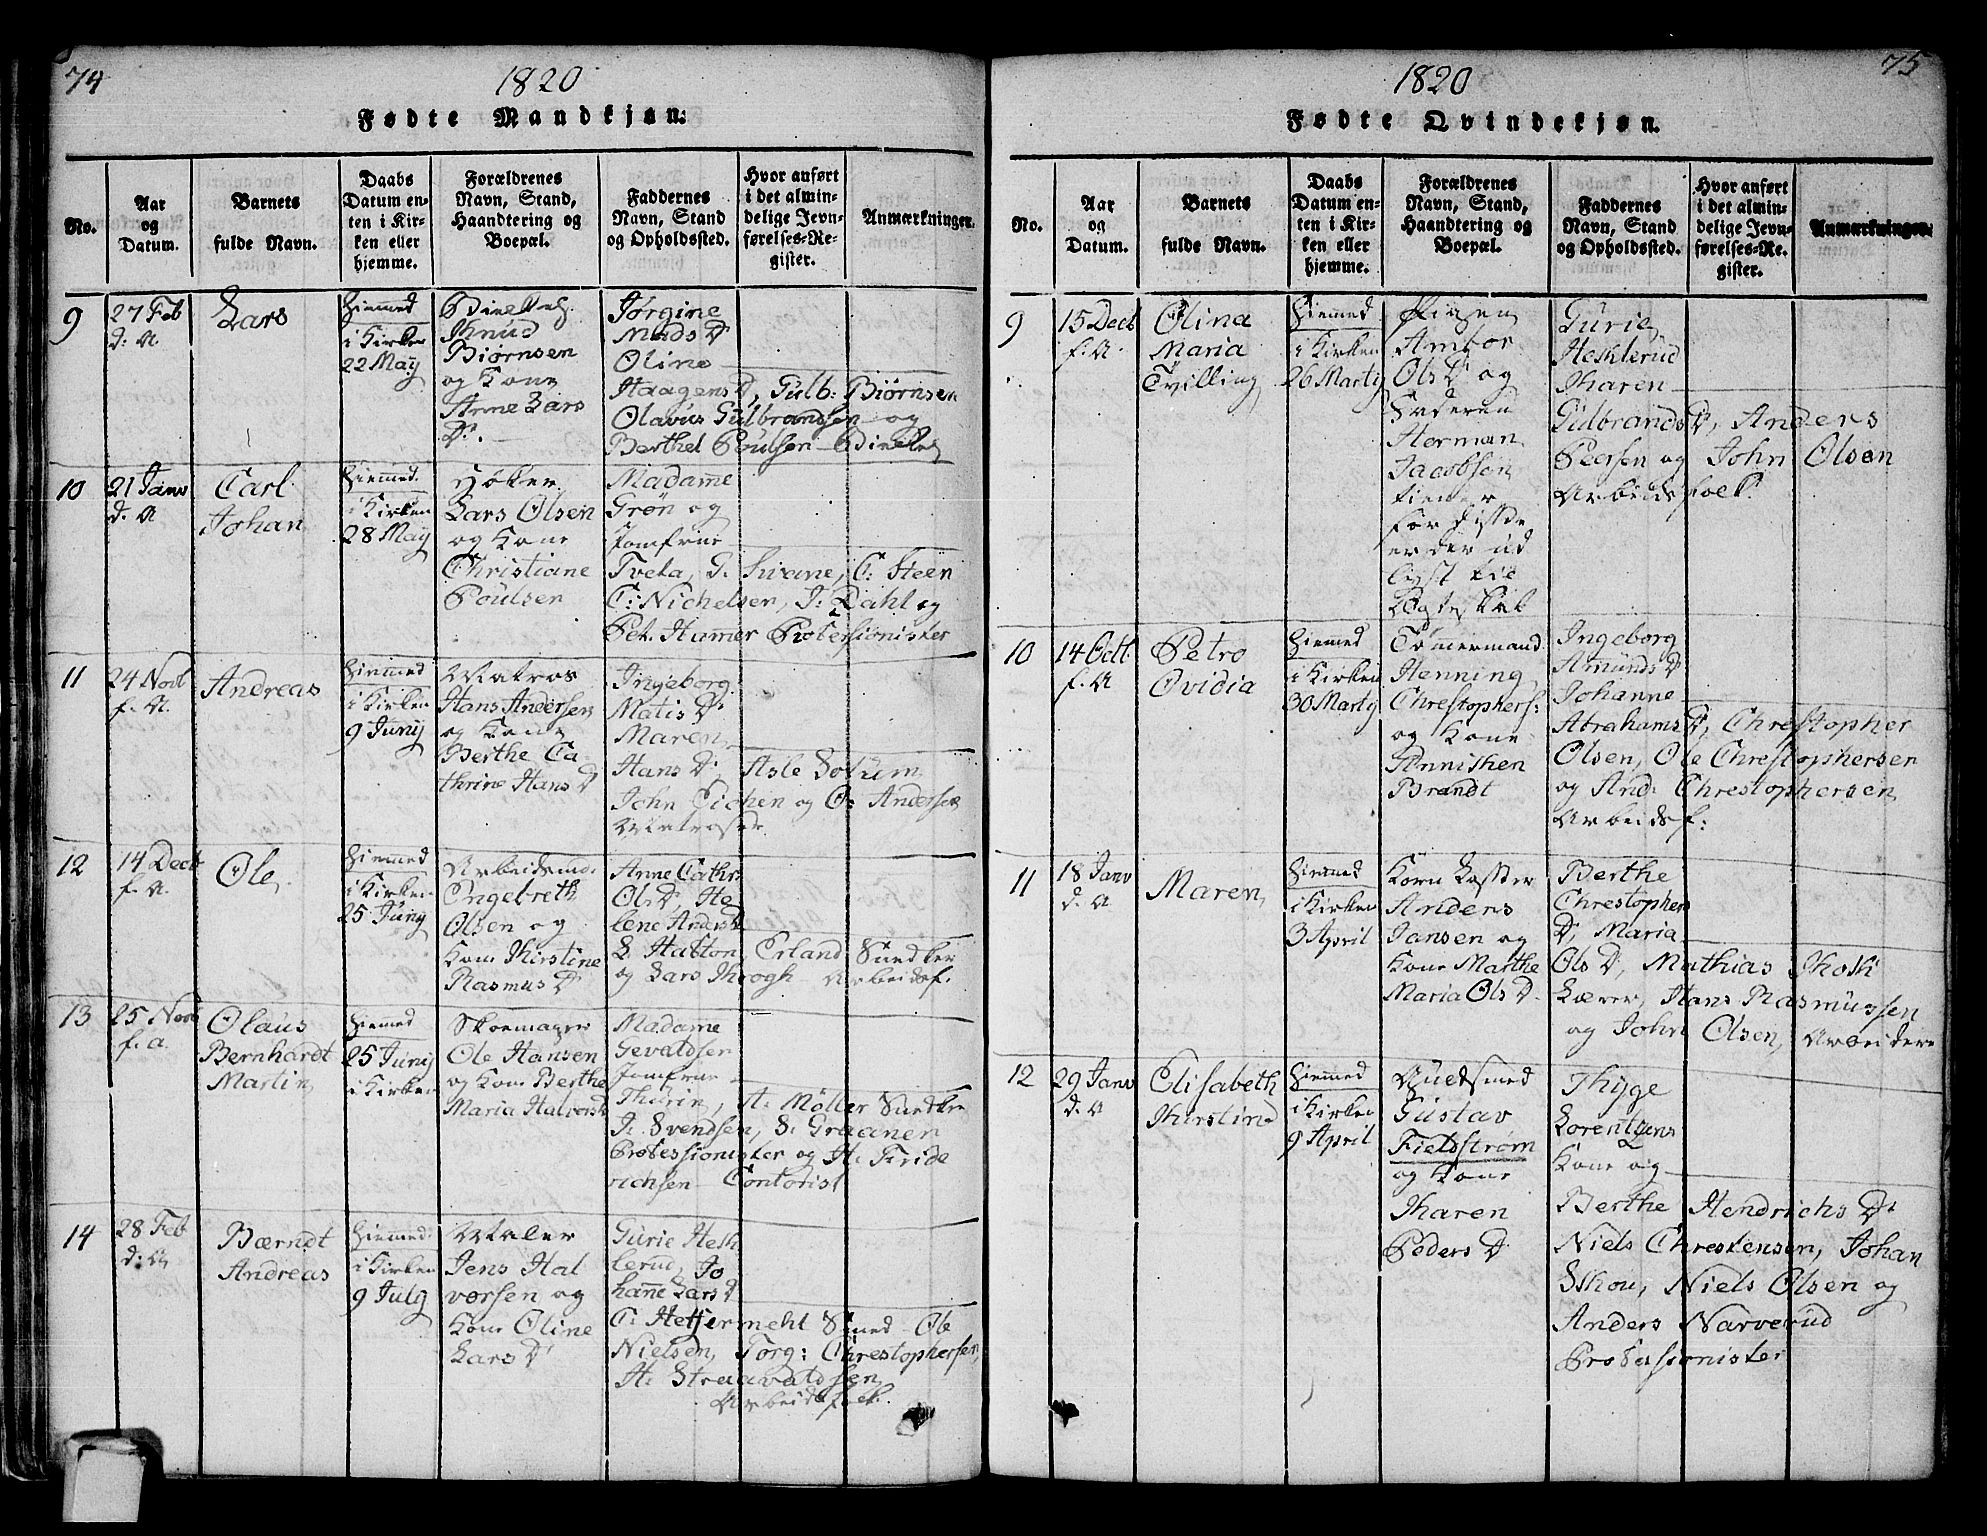 74
1820
Fødte Mandkjøn.
No.
Aar og Datum.
Barnets fulde Navn.
Daabs Datum enten i Kirken eller hjemme.
Forældrenes Navn, Stand, Haandtering og Boepæl.
Faddernes Navn, Stand og Opholdssted.
Hvor anført i det almindelige Jevnførelses-Register.
Anmærkninger.
9
27 Feb
d: A
Lars
Hiemmed
i Kirken
22 Maÿ
Knud
Biørnsen
og Kone
Anne Lars
D.
Jørgine
Mads D
Oline
Haagens D, Gulb: Biørnsen
Olavus Gulbrandsen og
Berthel Poulsen
10
21 Janv
d. A
Carl
Johan
Hiemmed
i Kirken
28 Maÿ
Høker
Lars Olsen
og Kone
Christiane
Poulsen
Madamme
Grøn og
Jomfrue
Tveta, G. Svane, C: Steen
C: Nichelsen, J: Dahl og
Pet. Hammer Professionister
11
24 Novb
f. A.
Andreas
Hiemmed
i Kirken
9 Junÿ
Matros
Hans Andersen
og Kone
Berthe Ca
thrine Hans D
Ingeborg
Matis D
Maren
Hans D, Asle Solum
John Eichen og C: Andersen
Matroser
12
14 Decb
f. A.
Ole
Hiemmed
i Kirken
25 Junÿ
Arbeidsmd.
Engebreth
Olsen og
Kone Kirstine
Rasmus D
Anne Cathr.
Ols D, He
lene Anders D
L. Halton, Erland Snedker
og Lars Krogh Arbeidsf.
13
25 Novb
f. a.
Olaus
Bernhardt
Martin
Hiemmed
25 Junÿ
i Kirken
Skoemager
Ole Hansen
og Kone Berthe
Maria Halvors D
Madamme
Gevaldsen
Jomfrue
Thurin, A: Möller Snedker
J. Svendsen, S: Graanen
Professionister og H. Fride
richsen Contorist
14
28 Feb
d: A
Bærndt
Andreas
Hiemmed
i Kirken
9 Julÿ
Maler
Jens Hal
vorsen og
Kone Oline
Lars D
Gurie Hesk
lerud, Jo
hanne Lars D
C: Hetsermehl Smed Ole
Nielsen, Torg: Chrestophersen,
H. Straavaldsen
Arbeidsfolk.
75
1820
Fødte Qvindekjøn.
No.
Aar og Datum.
Barnets fulde Navn.
Daabs Datum enten i Kirken eller hjemme.
Forældrenes Navn, Stand, Haandtering og Boepæl.
Faddernes Navn, Stand og Opholdssted.
Hvor anført i det almindelige Jevnførelses-Register.
Anmærkninger.
9
15 Decb
f. A.
Olina
Maria
Tvilling
Hiemmed
i Kirken
26 Martÿ
Pigen
Ambor
Ols D og
Faderen
Herman
Jacobsen
tiener
for disse
er der ud
lÿst til
Ægteskab
Gurie
Hesklerud
Karen
Gulbrands D, Anders
Peersen og John Olsen
Arbeidsfolk.
10
14 Octb.
f. A
Petro
Ovidia
Hiemmed
i Kirken
30 Martÿ
Tømmermand
Henning
Chrestophers:
og Kone
Annichen
Brandt
Ingeborg
Amunds D
Johanne
Abrahams D, Chrestopher
Olsen, Ole Chrestophersen
og And: Chrestophersen
Arbeidsf:
11
18 Janv
d. A
Maren
Hiemmed
i Kirken
3 April
Anders
Jansen og
Kone Marthe
Maria Ols D.
Berthe
Chrestophers
D, Maria
Ols D, Mathias Kosk
Lærer, Hans Rasmussen
og John Olsen, Arbeidere
12
29 Janv
d. A
Elisabeth
Kirstine
Hiemmed
i Kirken
9 April
Guldsmed
Gustav
Fieldstrøm
og Kone
Karen
Peders D
Thyge
Lorentzens
Kone og
Berthe Hendrichs D
Niels Chrestensen, Johan
Skou, Niels Olsen og
Anders Narverud
Professionister